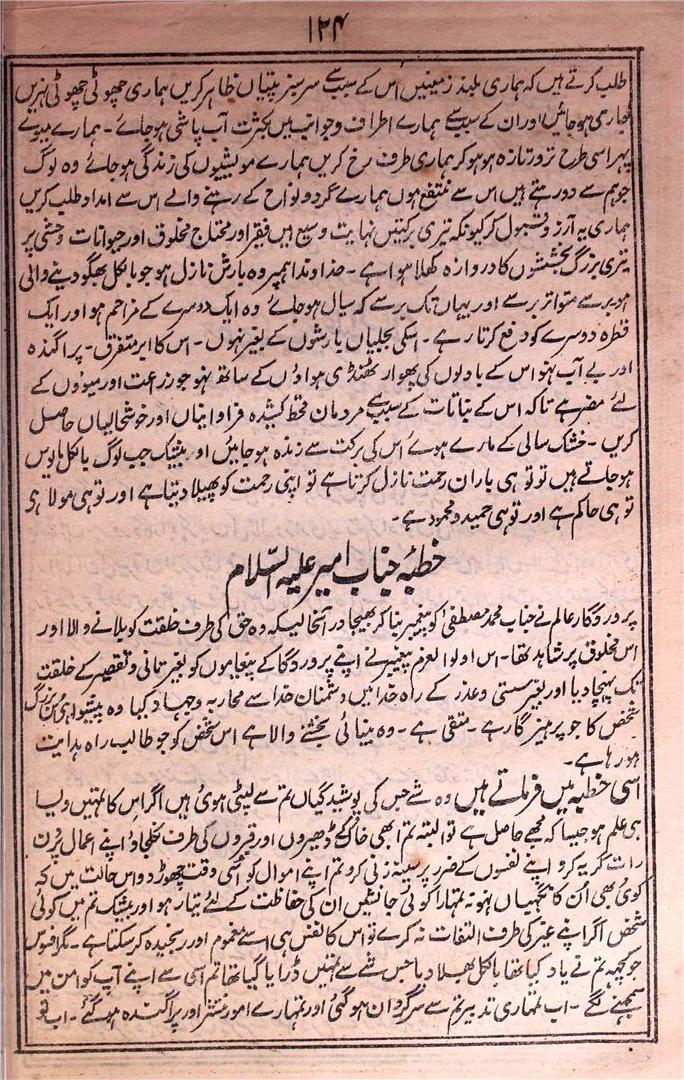 ۱۲۴
طلب کرتے ہیں کہ ہماری بلند زمینیں اُس کے سبب سے سرسبز پتیاں ظاہر کریں ہماری چھوٹی چھوٹی نہریں
جاری ہو جائیں اور ان کے سبب سے ہمارے اطراف و جوانب میں بکثرت آب پاشی ہو جائے۔ ہمارے میوے
پہر اسی طرح تروتازہ ہو ہو کر ہماری طرف رخ کریں ہمارے مویشیوں کی زندگی ہو جائے وہ لوگ
جو ہم سے دور رہتے ہیں اس سے متمتع ہوں ہمارے گرد و نواح کے رہنے والے اس سے امداد طلب کریں
ہماری یہ آرزو قبول کر کیونکہ تیری برکتیں نہایت وسیع ہیں فقیر اور محتاج مخلوق اور حیوانات وحشی پر
تیری بزرگ بخششوں کا دروازہ کھلا ہوا ہے۔ خداوندا ہمپر وہ بارش نازل ہو جو بالکل بھگو دینے والی
ہو برسے متواتر برسے اور یہاں تک برسے کہ سیال ہو جائے وہ ایک دوسرے کے مزاحم ہو اور ایک
قطرہ دوسرے کو دفع کرتا رہے۔ اسکی بجلیاں بارشوں کے بغیر نہوں۔ اس کا ابر متفرق۔ پراگندہ
اور بے آب نہو اس کے بادلوں کی پھوار ٹھنڈی ہواؤں کے ساتھ نہو جو زراعت اور میووں کے
لئے مضر ہے تاکہ اس کے نباتات کے سبب سے مردمان قحط کشیدہ فراوانیاں اور خوشحالیاں حاصل
کریں۔ خشک سالی کے مارے ہوئے اس کی برکت سے زندہ ہو جائیں اور بیشک جب لوگ بالکل مایوس
ہو جاتے ہیں تو تو ہی باران رحمت نازل کرتا ہے تو اپنی رحمت کو پھیلا دیتا ہے اور تو ہی مولا ہے
تو ہی حاکم ہے اور تو ہی حمید و محمود ہے۔
خطبۂ جناب امیر علیہ السّلام
پروردگار عالم نے جناب محمد مصطفیٰ کو پیغمبر بنا کر بھیجا در آنحالیکہ وہ حق کی طرف خلقت کو بلانے والا اور
اس مخلوق پر شاہد تھا۔ اس اولوالعزم پیغمبر نے اپنے پروردگار کے پیغاموں کو بغیر توانی و تقصیر کے خلقت
تک پہنچا دیا اور بغیر سستی و عذر کے راہ خدا میں دشمنان خدا سے محاربہ و جہاد کیا وہ پیشوا ہے بزرگ
شخص کا جو پرہیزگار ہے۔ متقی ہے۔ وہ بینائی بخشنے والا ہے اس شخص کو جو طالب راہ ہدایت
ہو رہا ہے۔
اسی خطبہ میں فرماتے ہیں وہ شے جس کی پوشیدگیاں تم سے لپٹی ہوئی ہیں اگر اس کا تمہیں ویسا
ہی علم ہو جیسا کہ مجھے حاصل ہے تو البتہ تم ابھی خاک کے ڈھیروں اور قبروں کی طرف نکل جاؤ اپنے اعمال پر دن
رات گریہ کرو اپنے نفسوں کے ضرر پر سینہ زنی کرو تم اپنے اموال کو اسی وقت چھوڑ دو اس حالت میں کہ
کوئی بھی اُن کا نگہبان نہو نہ تمہارا کوئی جانشیں ان کی حفاظت کے لئے تیار ہو اور بیشک تم میں کوئی
شخص اگر اپنے غیر کی طرف التفات نہ کرے تو اس کا نفس ہی اسے مغموم اور رنجیدہ کر سکتا ہے۔ مگر افسوس
جو کچھ تم نے یاد کیا تھا بالکل بھلا دیا جس شے سے تمہیں ڈرایا گیا تھا تم اسی سے اپنے آپ کو امن میں
سمجھنے لگے۔ اب تمہاری تدبیر تم سے سرگرداں ہو گئی اور تمہارے امور منتشر اور پراگندہ ہو گئے۔ اب تو